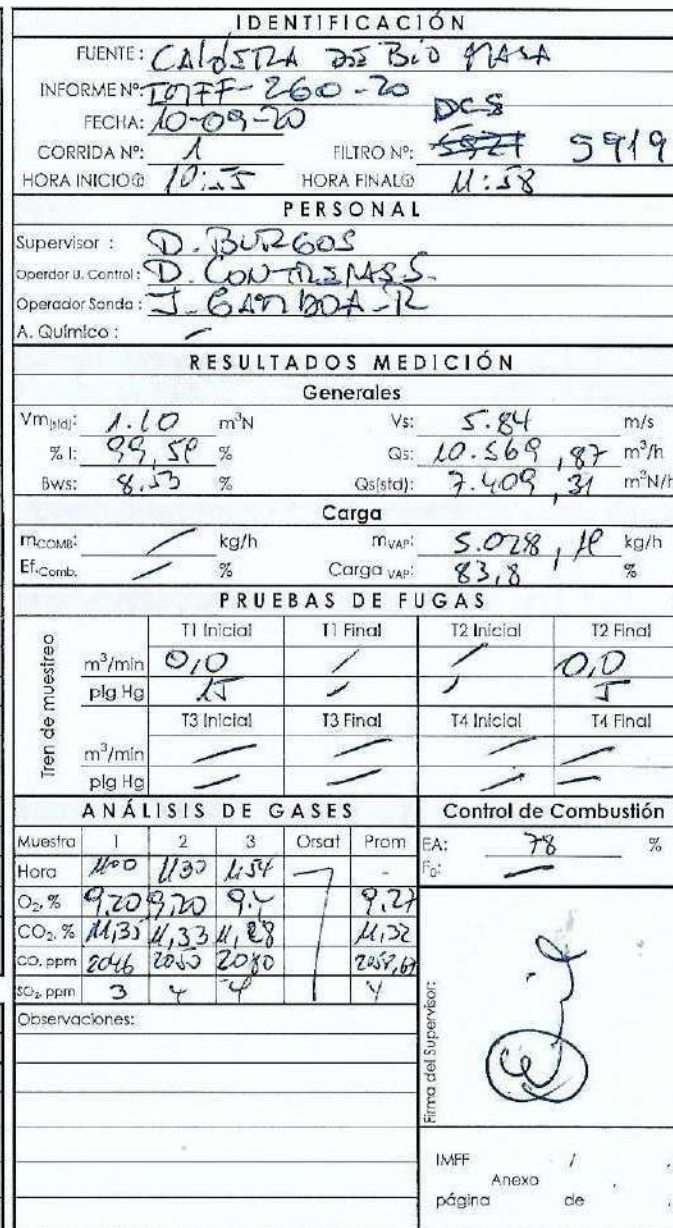 IDENTIFICACIÓN
FUENTE: CALDERA DE BIO MASA
INFORME Nº: IMFF-260-20
FECHA: 10-09-20
DCS
CORRIDA Nº: 1 FILTRO Nº: 5927 5919
HORA INICIO 10:55 HORA FINAL 11:58
PERSONAL
Supervisor : D. BURGOS
Operdor U. Control: D. CONTRERAS S.
Operador Sonda: J. GAMBOA-R
A. Químico : -
RESULTADOS MEDICIÓN
Generales
Vm(std): 1.10 m³N Vs: 5.84 m/s
% I: 99,58 % Qs: 10.569,87 m³/h
Bws: 8,53 % Qs(std): 7.409,31 m³N/h
Carga
mCOMB: / kg/h mVAP: 5.028,18 kg/h
Ef.Comb. / % Carga VAP: 83,8 %
PRUEBAS DE FUGAS
Tren de muestreo
T1 Inicial T1 Final T2 Inicial T2 Final
m³/min 0,0 / / 0,0
plg Hg 15 / / 5
T3 Inicial T3 Final T4 Inicial T4 Final
m³/min / / / /
plg Hg / / / /
ANÁLISIS DE GASES Control de Combustión
Muestra 1 2 3 Orsat Prom EA: 78 %
Hora 1100 1130 1154 - Fo: -
O₂, % 9,20 9,20 9.4 9,27
CO₂, % 11,35 11,33 11,28 11,32
CO, ppm 2046 2050 2080 2058,67
SO₂, ppm 3 4 4 4
Observaciones:
Firma del Supervisor:
IMFF /
Anexo
página de